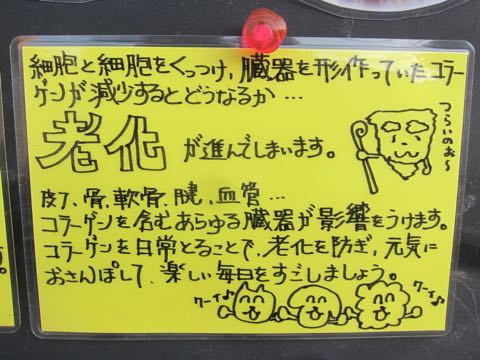 細胞と細胞をくっつけ、臓器を形作っていたコラー
ゲンが減少するとどうなるか…
老化が進んでしまいます。
つらいのぉ〜
皮フ、骨、軟骨、腱、血管…
コラーゲンを含むあらゆる臓器が影響をうけます。
コラーゲンを日常とることで、老化を防ぎ、元気に
おさんぽして、楽しい毎日をすごしましょう。
クーイ♪
クーイ♪